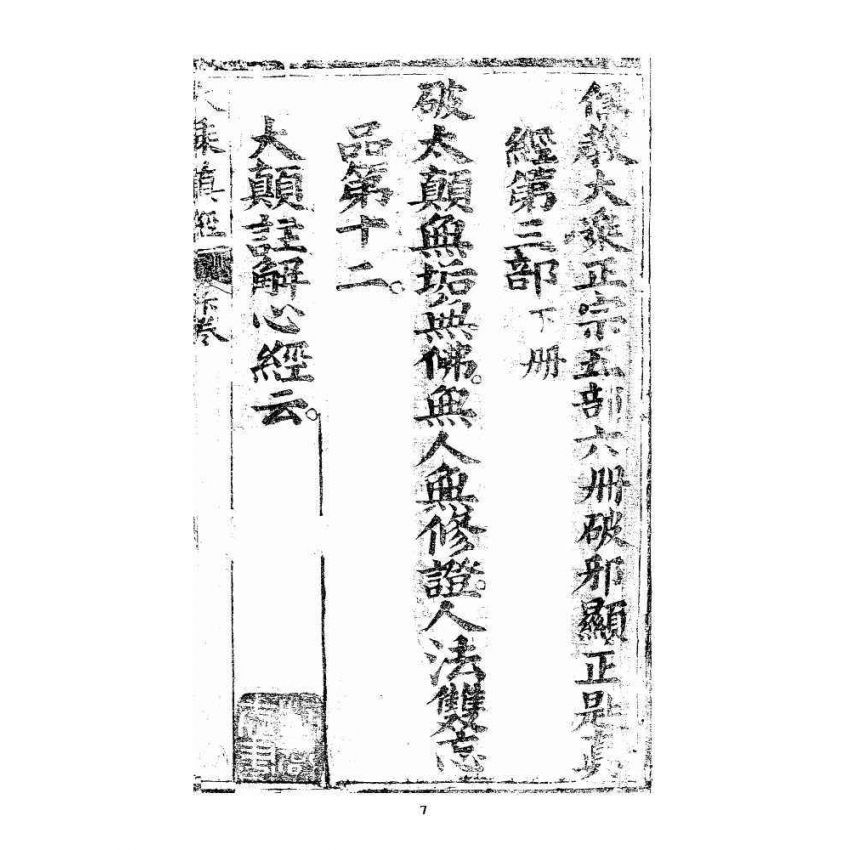 信教大乘正宗五部六冊破邪顯正是真
經第三部下冊
破太顛無垢無佛。無人無修證。人法雙忘
品第十二。
大顛註解心經云。
大乘真經 下卷
7